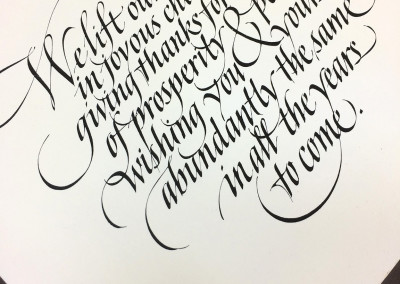 We lift ou
in joyous cha
giving thanks for
of prosperity & p
wishing you & your
abundantly the same
in all the years
to come.